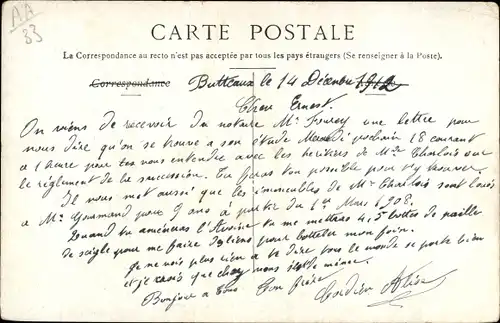 AA
33
CARTE POSTALE
La Correspondance au recto n'est pas acceptée par tous les pays étrangers (Se renseigner à la Poste).
Correspondance Butteaux le 14 Décembre 1912
Cher Ernest.
On viens de recevoir du notaire Mr une lettre pour
nous dire qu'on se trouve a son étude Mardi prochain 18 courant
a 1 heure pour nous entendre avec les héritiers de Mme Charlois sur
le réglement de la succession. Tu feras ton possible pour t'y trouver.
Il nous met aussi que les immeubles de Mr Charlois sont loués
a Mr Gourmand pour 9 ans a partir du 1er Mars 1908.
Quand tu amèneras tu me mettras 4, 5 bottes de paille
de seigle pour me faire des liens pour botteler mon foin.
Je ne vois plus rien a te dire tous le monde se porte bien
et je crois que chez vous est de même.
Bonjour a tous Ton frère